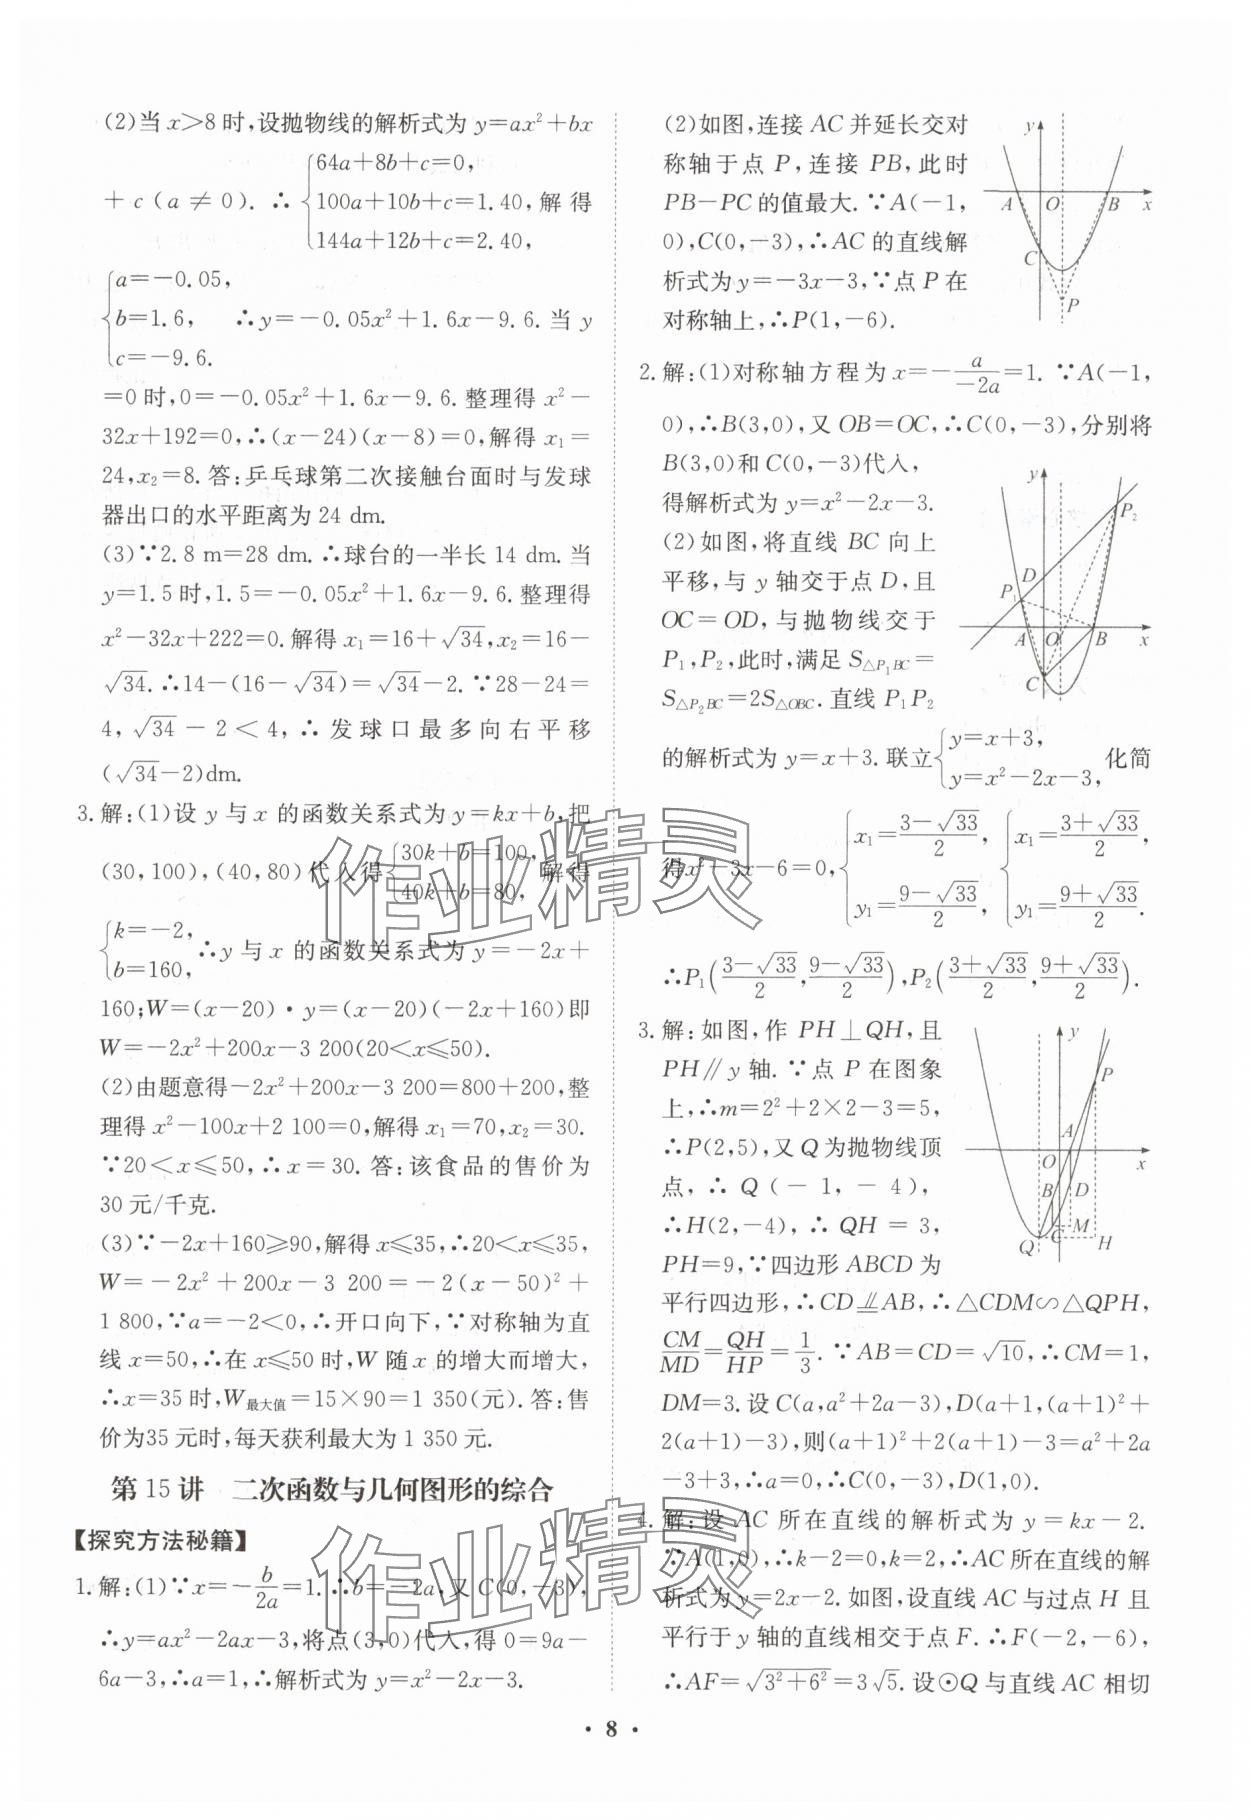 (2)当 x>8 时,设抛物线的解析式为 y=ax²+bx
+c(a≠0). ∴ {64a+8b+c=0,
100a+10b+c=1.40, 解得
144a+12b+c=2.40,
{a=-0.05,
b=1.6, ∴y=-0.05x²+1.6x-9.6. 当 y
c=-9.6.
=0 时,0=-0.05x²+1.6x-9.6. 整理得 x²-
32x+192=0,∴(x-24)(x-8)=0,解得 x₁=
24,x₂=8. 答:乒乓球第二次接触台面时与发球
器出口的水平距离为 24 dm.
(3)∵2.8 m=28 dm. ∴球台的一半长 14 dm. 当
y=1.5 时,1.5=-0.05x²+1.6x-9.6. 整理得
x²-32x+222=0. 解得 x₁=16+√34,x₂=16-
√34. ∴14-(16-√34)=√34-2. ∵28-24=
4,√34-2<4,∴发球口最多向右平移
(√34-2)dm.
3. 解:(1)设 y 与 x 的函数关系式为 y=kx+b,把
(30,100),(40,80)代入得{30k+b=100, 40k+b=80, 解得
{k=-2, b=160, ∴y 与 x 的函数关系式为 y=-2x+
160;W=(x-20)·y=(x-20)(-2x+160)即
W=-2x²+200x-3 200(20<x≤50).
(2)由题意得-2x²+200x-3 200=800+200,整
理得 x²-100x+2 100=0,解得 x₁=70,x₂=30.
∵20<x≤50,∴x=30. 答:该食品的售价为
30 元/千克.
(3)∵-2x+160≥90,解得 x≤35,∴20<x≤35,
W=-2x²+200x-3 200=-2(x-50)²+
1 800,∵a=-2<0,∴开口向下,∵对称轴为直
线 x=50,∴在 x≤50 时,W 随 x 的增大而增大,
∴x=35 时,W最大值=15×90=1 350(元). 答:售
价为35 元时,每天获利最大为 1 350 元.
第 15 讲 二次函数与几何图形的综合
【探究方法秘籍】
1. 解:(1)∵x=-b/2a=1. ∴b=-2a,又 C(0,-3),
∴y=ax²-2ax-3,将点(3,0)代入,得 0=9a-
6a-3,∴a=1,∴解析式为 y=x²-2x-3.
(2)如图,连接 AC 并延长交对
称轴于点 P,连接 PB,此时
PB-PC 的值最大. ∵A(-1,
0),C(0,-3),∴AC 的直线解
析式为 y=-3x-3,∵点 P 在
对称轴上,∴P(1,-6).
y
A O B x
C
P
2. 解:(1)对称轴方程为 x=-a/-2a=1. ∵A(-1,
0),∴B(3,0),又 OB=OC,∴C(0,-3),分别将
B(3,0)和 C(0,-3)代入,
得解析式为 y=x²-2x-3.
(2)如图,将直线 BC 向上
平移,与 y 轴交于点 D,且
OC=OD,与抛物线交于
P₁,P₂,此时,满足 S△P₁BC=
S△P₂BC=2S△OBC. 直线 P₁P₂
y
P₂
D
P₁
A O B x
C
的解析式为 y=x+3. 联立{y=x+3, y=x²-2x-3, 化简
得x²-3x-6=0,{x₁=(3-√33)/2, y₁=(9-√33)/2, {x₁=(3+√33)/2, y₁=(9+√33)/2.
∴P₁((3-√33)/2,(9-√33)/2),P₂((3+√33)/2,(9+√33)/2).
3. 解:如图,作 PH⊥QH,且
PH∥y 轴. ∵点 P 在图象
上,∴m=2²+2×2-3=5,
∴P(2,5),又 Q 为抛物线顶
点,∴Q(-1,-4),
∴H(2,-4),∴QH=3,
PH=9,∵四边形 ABCD 为
y
P
A
O x
B D
C M
Q H
平行四边形,∴CD⫽AB,∴△CDM∽△QPH,
CM/MD=QH/HP=1/3. ∵AB=CD=√10,∴CM=1,
DM=3. 设 C(a,a²+2a-3),D(a+1,(a+1)²+
2(a+1)-3),则(a+1)²+2(a+1)-3=a²+2a
-3+3,∴a=0,∴C(0,-3),D(1,0).
4. 解:设 AC 所在直线的解析式为 y=kx-2.
∵A(1,0),∴k-2=0,k=2,∴AC所在直线的解
析式为 y=2x-2. 如图,设直线 AC 与过点 H 且
平行于 y 轴的直线相交于点 F. ∴F(-2,-6),
∴AF=√(3²+6²)=3√5. 设⊙Q 与直线 AC 相切
· 8 ·
作业精灵
作业精灵